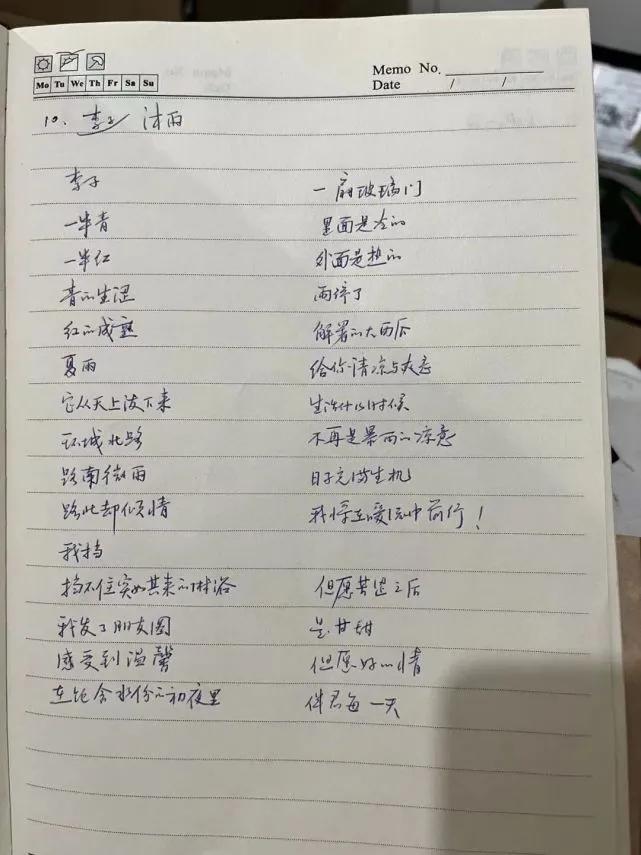 Mo Tu We Th Fr Sa Su
Memo No.
Date / /
10、李子 沐雨
李子
一半青
一半红
青的生涩
红的成熟
夏雨
它从天上泼下来
环城北路
路南微雨
路北却倾情
我挡
挡不住突如其来的淋浴
我发了朋友圈
感受到温馨
在饱含水份的初夜里
一扇玻璃门
里面是冷的
外面是热的
雨停了
解暑的大西瓜
给你清凉与爽意
生活什么时候
不再是暴雨的凉意
日子充满生机
我将在暖流中前行！
但愿苦涩之后
是甘甜
但愿好心情
伴君每一天